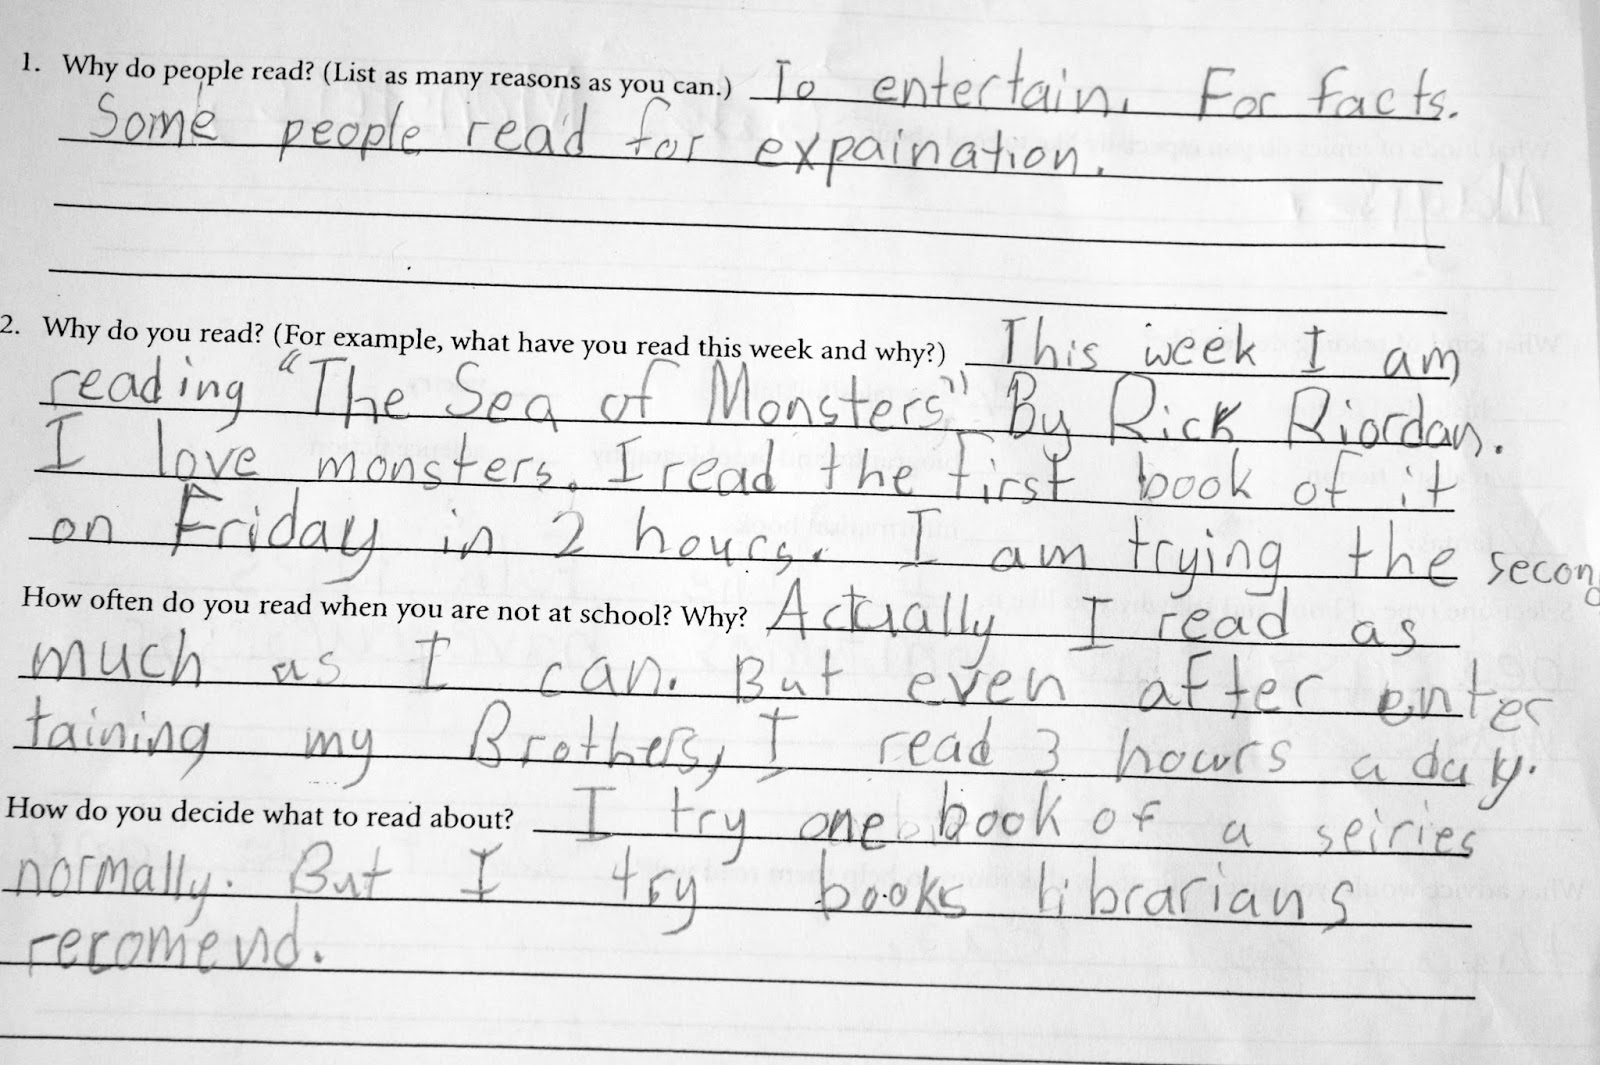 1. Why do people read? (List as many reasons as you can.) To entertain. For facts.
Some people read for expaination.
2. Why do you read? (For example, what have you read this week and why?) This week I am
reading "The Sea of Monsters" By Rick Riordan.
I love monsters. I read the first book of it
on Friday in 2 hours. I am trying the secon
How often do you read when you are not at school? Why? Actually I read as
much as I can. But even after enter
taining my Brothers, I read 3 hours a day.
How do you decide what to read about? I try one book of a seiries
normally. But I try books librarians
recomend.